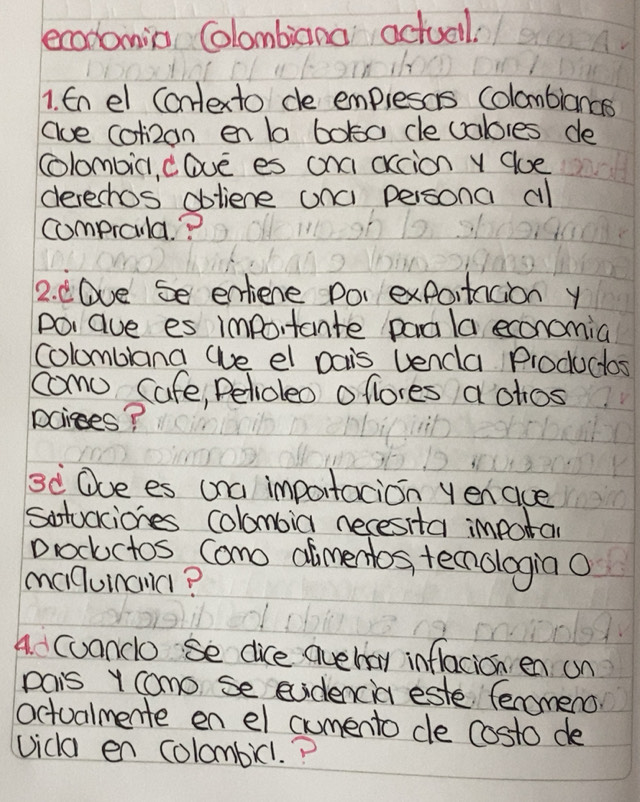 economia Colombiana actual.
1. En el Contexto de empresas Colombianas
que cotizan en la bolsa de valores de
Colombia, ¿Qué es una accion y que
derechos obtiene una persona al
comprarla.?
2. ¿Que se entiene por exportacion y
por que es importante para la economia
Colombiana que el pais venda Productos
como Cafe, Petroleo o flores a otros
paises?
3 ¿ Que es una importación y en que
sotuaciones Colombia necesita importar
productos como alimentos, tecnologia o
maquinaria?
4. ¿Cuando se dice que hay inflación en un
pais y como se evidencia este fenomeno
actualmente en el aumento de costo de
vida en Colombia.?